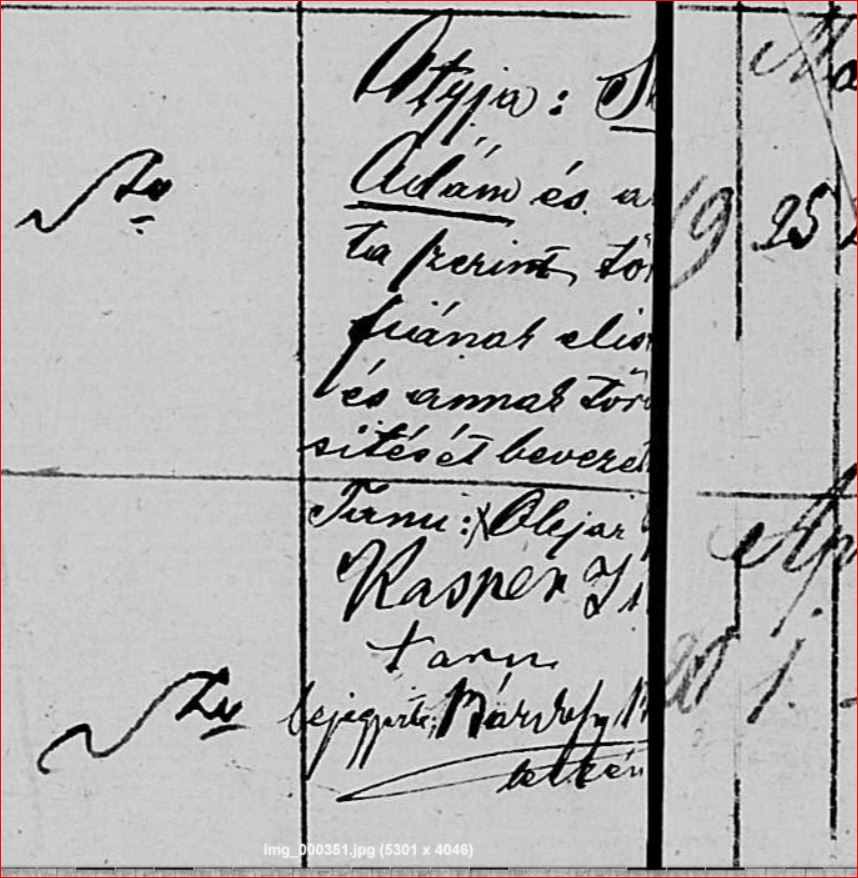 Atyja: S
Ádám és a
ta szerint tö
fiának elis
és annak törv
sitését bevezet
Tanu: Olejar
Kasper
tanu
bejegyezte: Bárdosy
lelkén
Ma
19 25
Ap
20 1.
img_000351.jpg (5301 x 4046)